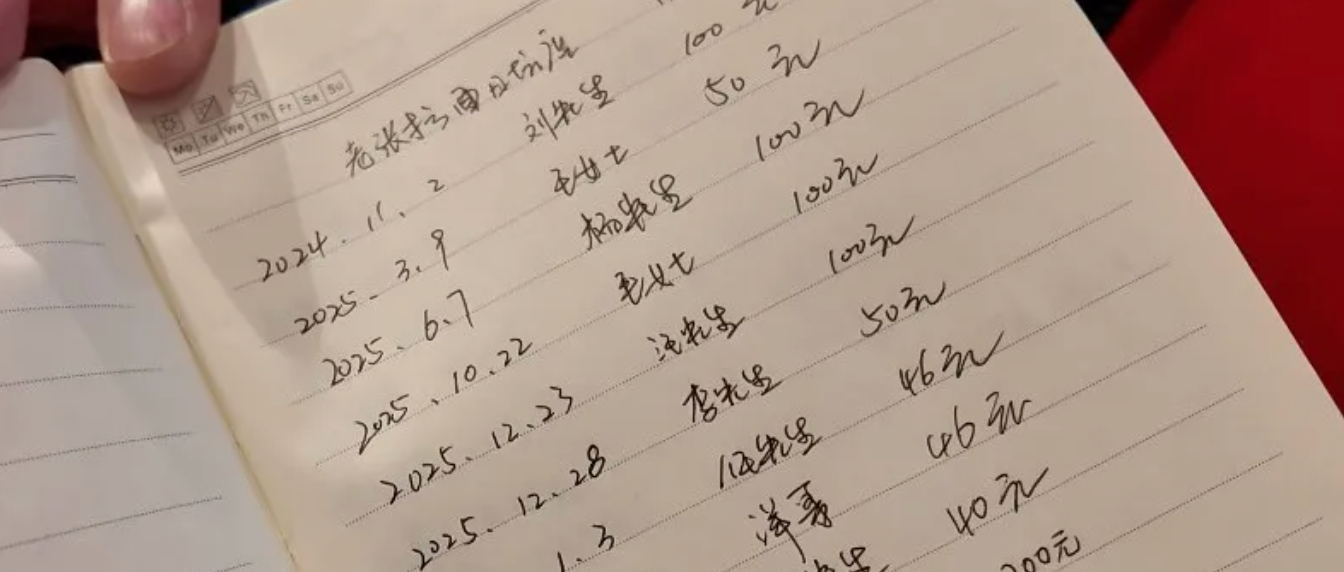 Mo Tu We Th Fr Sa Su
老张拉面
2024.11.2 刘先生 100元
2025.3.9 毛女士 50元
2025.6.7 杨先生 100元
2025.10.22 毛女士 100元
2025.12.23 汪先生 100元
2025.12.28 李先生 50元
1.3 先生 46元
洋哥 46元
40元
200元